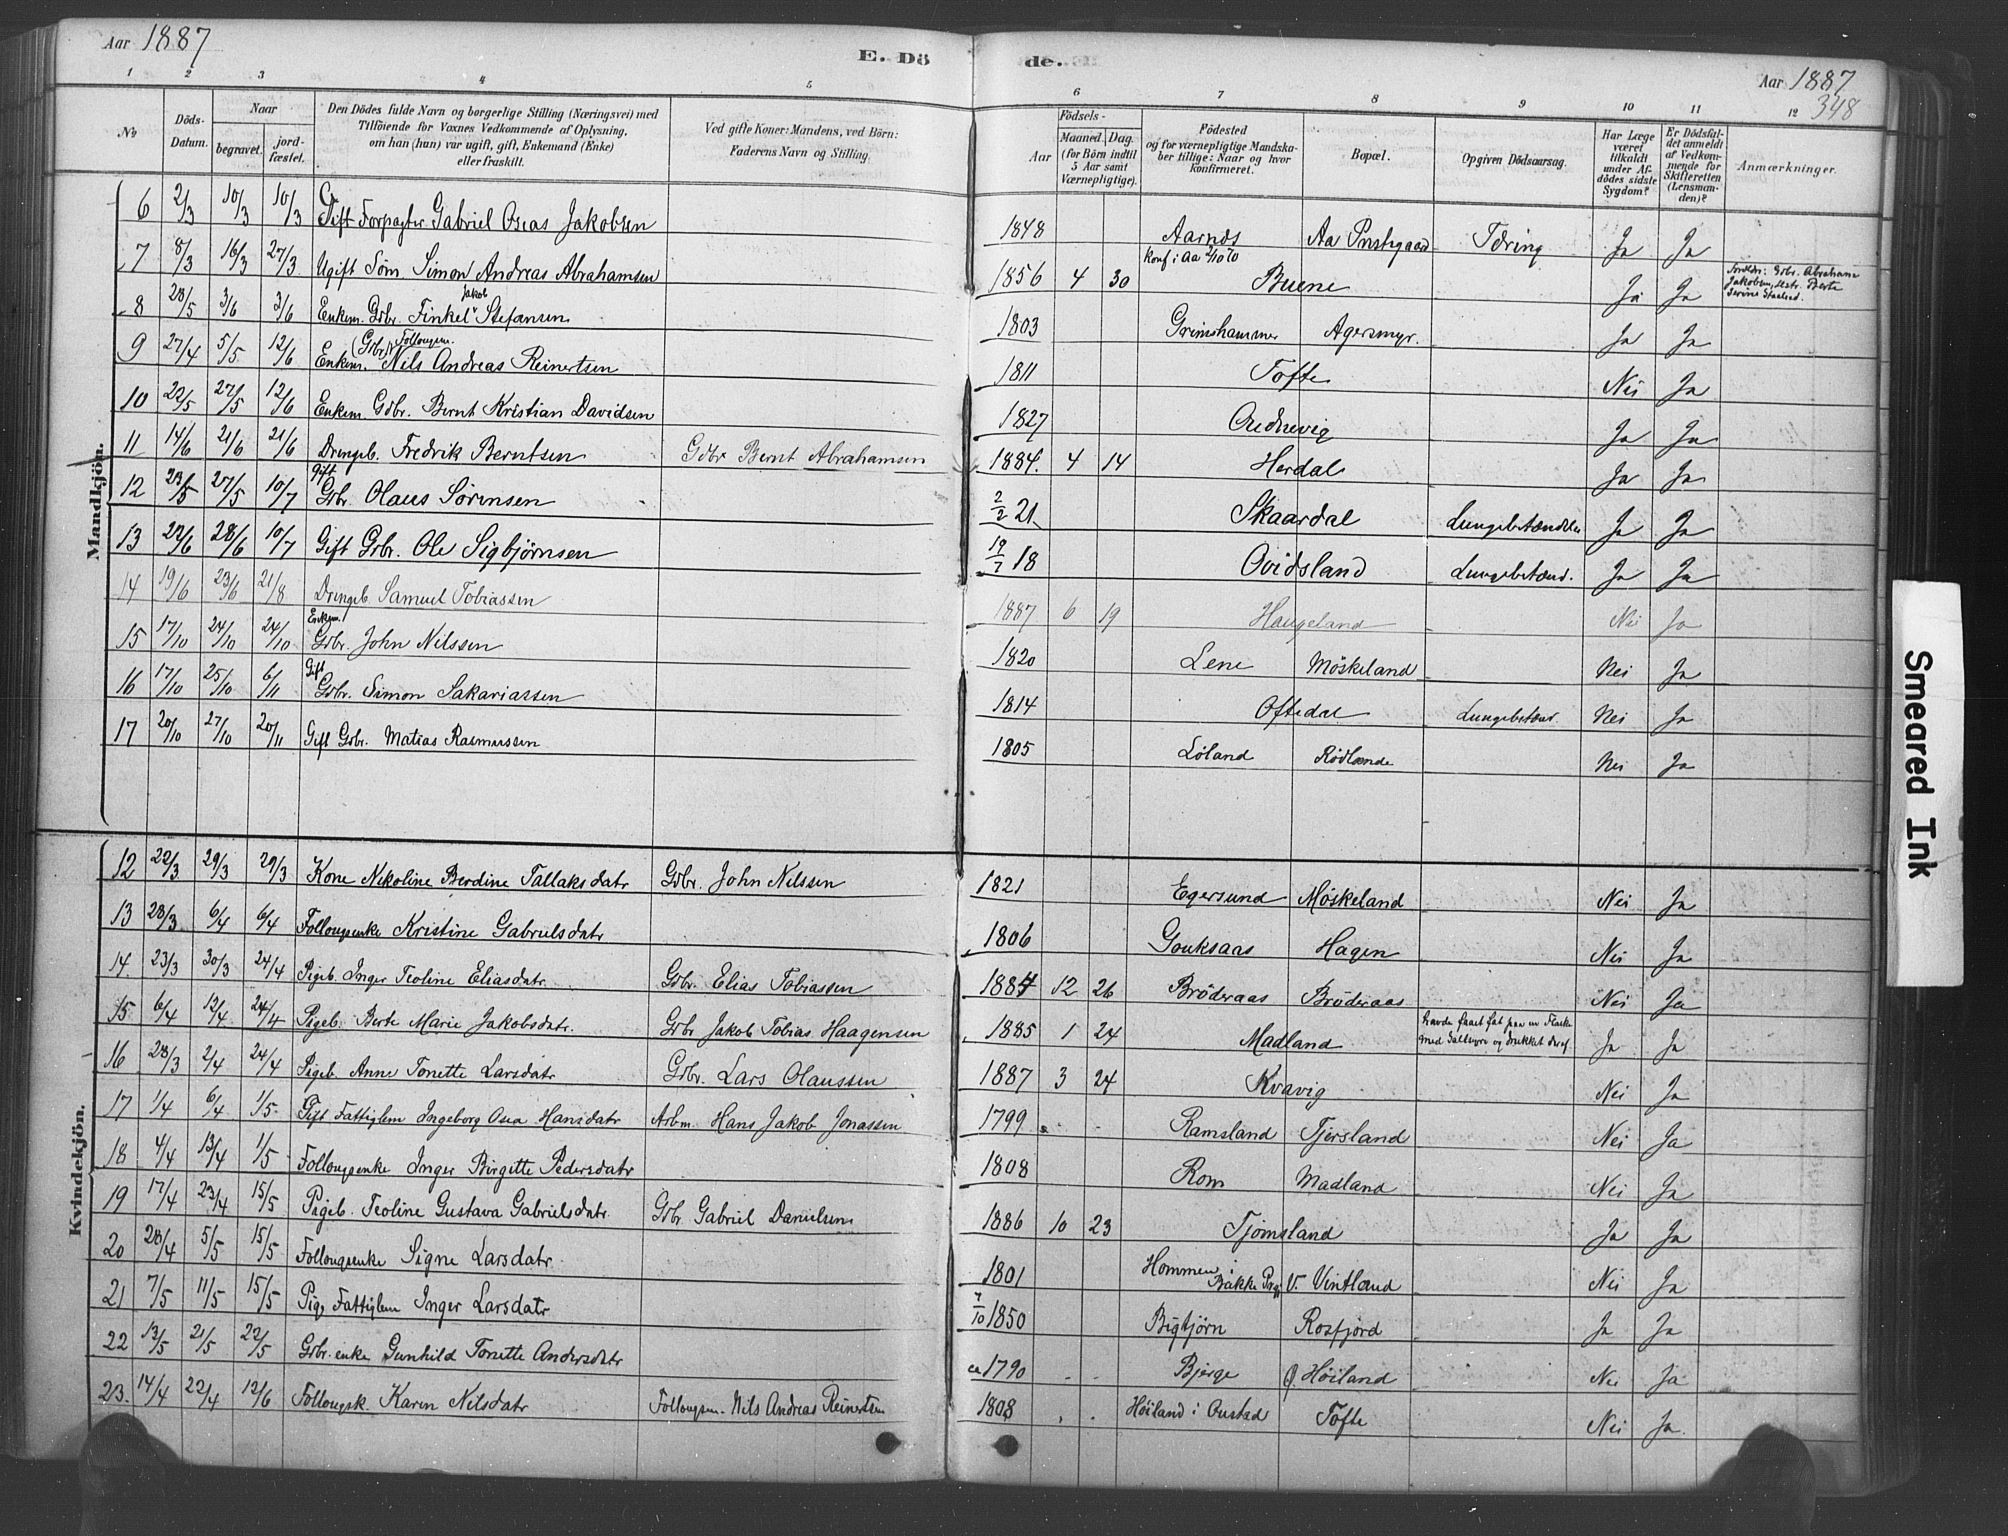 Aar 1887
E. Dö
de.
Aar 1887
348
1 2 3 4 5
6 7 8 9 10 11 12
No
Döds-Datum.
Naar
begravet.
jord-fæstet.
Den Dödes fulde Navn og borgerlige Stilling (Næringsvei) med
Tilföiende for Voxnes Vedkommende af Oplysning,
om han (hun) var ugift, gift, Enkemand (Enke)
eller fraskilt.
Ved gifte Koner: Mandens, ved Börn:
Faderens Navn og Stilling.
Födsels-
Aar
Maaned. Dag.
(for Börn indtil
5 Aar samt
Værnepligtige).
Födested
og for værnepligtige Mandska-
ber tillige: Naar og hvor
konfirmeret.
Bopæl.
Opgiven Dödsaarsag.
Har Læge
været
tilkaldt
under Af-
dödes sidste
Sygdom?
Er Dödsfal-
det anmeldt
af Vedkom-
mende for
Skifteretten
(Lensman-
den)?
Anmærkninger.
Mandkjön.
6 2/3 10/3 10/3 Gift Forpagter Gabriel Oseas Jakobsen 1848 Aarnes Aa Prestegaard Tæring Ja Ja
7 8/3 16/3 27/3 Ugift Søm. Simon Andreas Abrahamsen 1856 4 30 Konf i Aa Buene Ja Ja Forældre: Gdbr. Abraham Jakobsen,
8 28/5 3/6 3/6 Enkem. Gdbr. Finkel Jakob Stefansen 1803 Grimshammer Agersmyr. Ja Ja
9 27/4 5/5 12/6 Enkem. (Gdbr) Follougsm. Nils Andreas Reinertsen 1811 Tofte Nei Ja
10 22/5 27/5 12/6 Enkem. Gdbr. Bernt Kristian Davidsen 1827 Ja Ja
11 14/6 21/6 21/6 Drengeb. Fredrik Berntsen Gdbr Bernt Abrahamsen 1884. 4 14 Herdal Ja Ja
12 23/5 27/5 10/7 Gift Gdbr. Olaus Sørensen 2/2 21 Skaardal Lungebetændelse Ja Ja
13 22/6 28/6 10/7 Gift Gdbr. Ole Sigbjørnsen 19/7 18 Qvidsland Lungebetænd. Ja Ja
14 19/6 23/6 21/8 Drengeb. Samuel Tobiassen 1887 6 19 Haugeland Nei Ja
15 17/10 24/10 24/10 Enkem. Gdbr. John Nilssen 1820 Lene Möskeland Nei Ja
16 17/10 25/10 6/11 Gift Gdbr. Simon Sakariassen 1814 Oftedal Lungebetænd. Nei Ja
17 20/10 27/10 20/11 Gift Gdbr. Matias Rasmussen 1805 Løland Rødlande Nei Ja
Kvindekjön.
12 22/3 29/3 29/3 Kone Nikoline Berdine Tallaksdatr Gdbr. John Nilssen 1821 Egersund Møskeland Nei Ja
13 28/3 6/4 6/4 Follougsenke Kristine Gabrielsdatr 1806 Gouksaas Hagen Nei Ja
14. 23/3 30/3 24/4 Pigeb. Inger Teoline Eliasdatr. Gdbr. Elias Tobiassen 1884 12 26 Bröderaas Bröderaas Nei Ja
15 6/4 12/4 24/4 Pigeb. Berte Marie Jakobsdatr. Gdbr Jakob Tobias Haagensen 1885 1 24 Madland havde faaet fat paa en Flaske med Saltsyre og drukket deraf Ja Ja
16 28/3 2/4 24/4 Pigeb. Anne Tonette Larsdatr Gdbr. Lars Olaussen 1887 3 24 Kvavig Nei Ja
17 1/4 6/4 1/5 Gift Fattiglem Ingeborg Osea Hansdatr Arbm. Hans Jakob Jonassen 1799 Ramsland Tjersland Nei Ja
18 4/4 13/4 1/5 Follougsenke Inger Birgitte Pedersdatr 1808 Rom Madland Nei Ja
19 17/4 23/4 15/5 Pigeb. Teoline Gustava Gabrielsdatr. Gdbr Gabriel Danielsen 1886 10 23 Tjomsland Ja Ja
20 28/4 5/5 15/5 Follougsenke Signe Larsdatr. 1801 Hommen i Bakke Prgj. V. Vintland Nei Ja
21 7/5 11/5 15/5 Pige, Fattiglem Inger Larsdatr 7/10 1850 Bigtjørn Rosfjord Ja Ja
22 13/5 21/5 22/5 Gdbr. enke Gunhild Tonette Andersdatr ca 1790 Bjerge Ø. Höiland Nei Ja
23. 14/4 22/4 12/6 Follougsk. Karen Nilsdatr Follougsm. Nils Andreas Reinertsen 1808 Höiland i Oustad Tofte Nei Ja
Smeared Ink